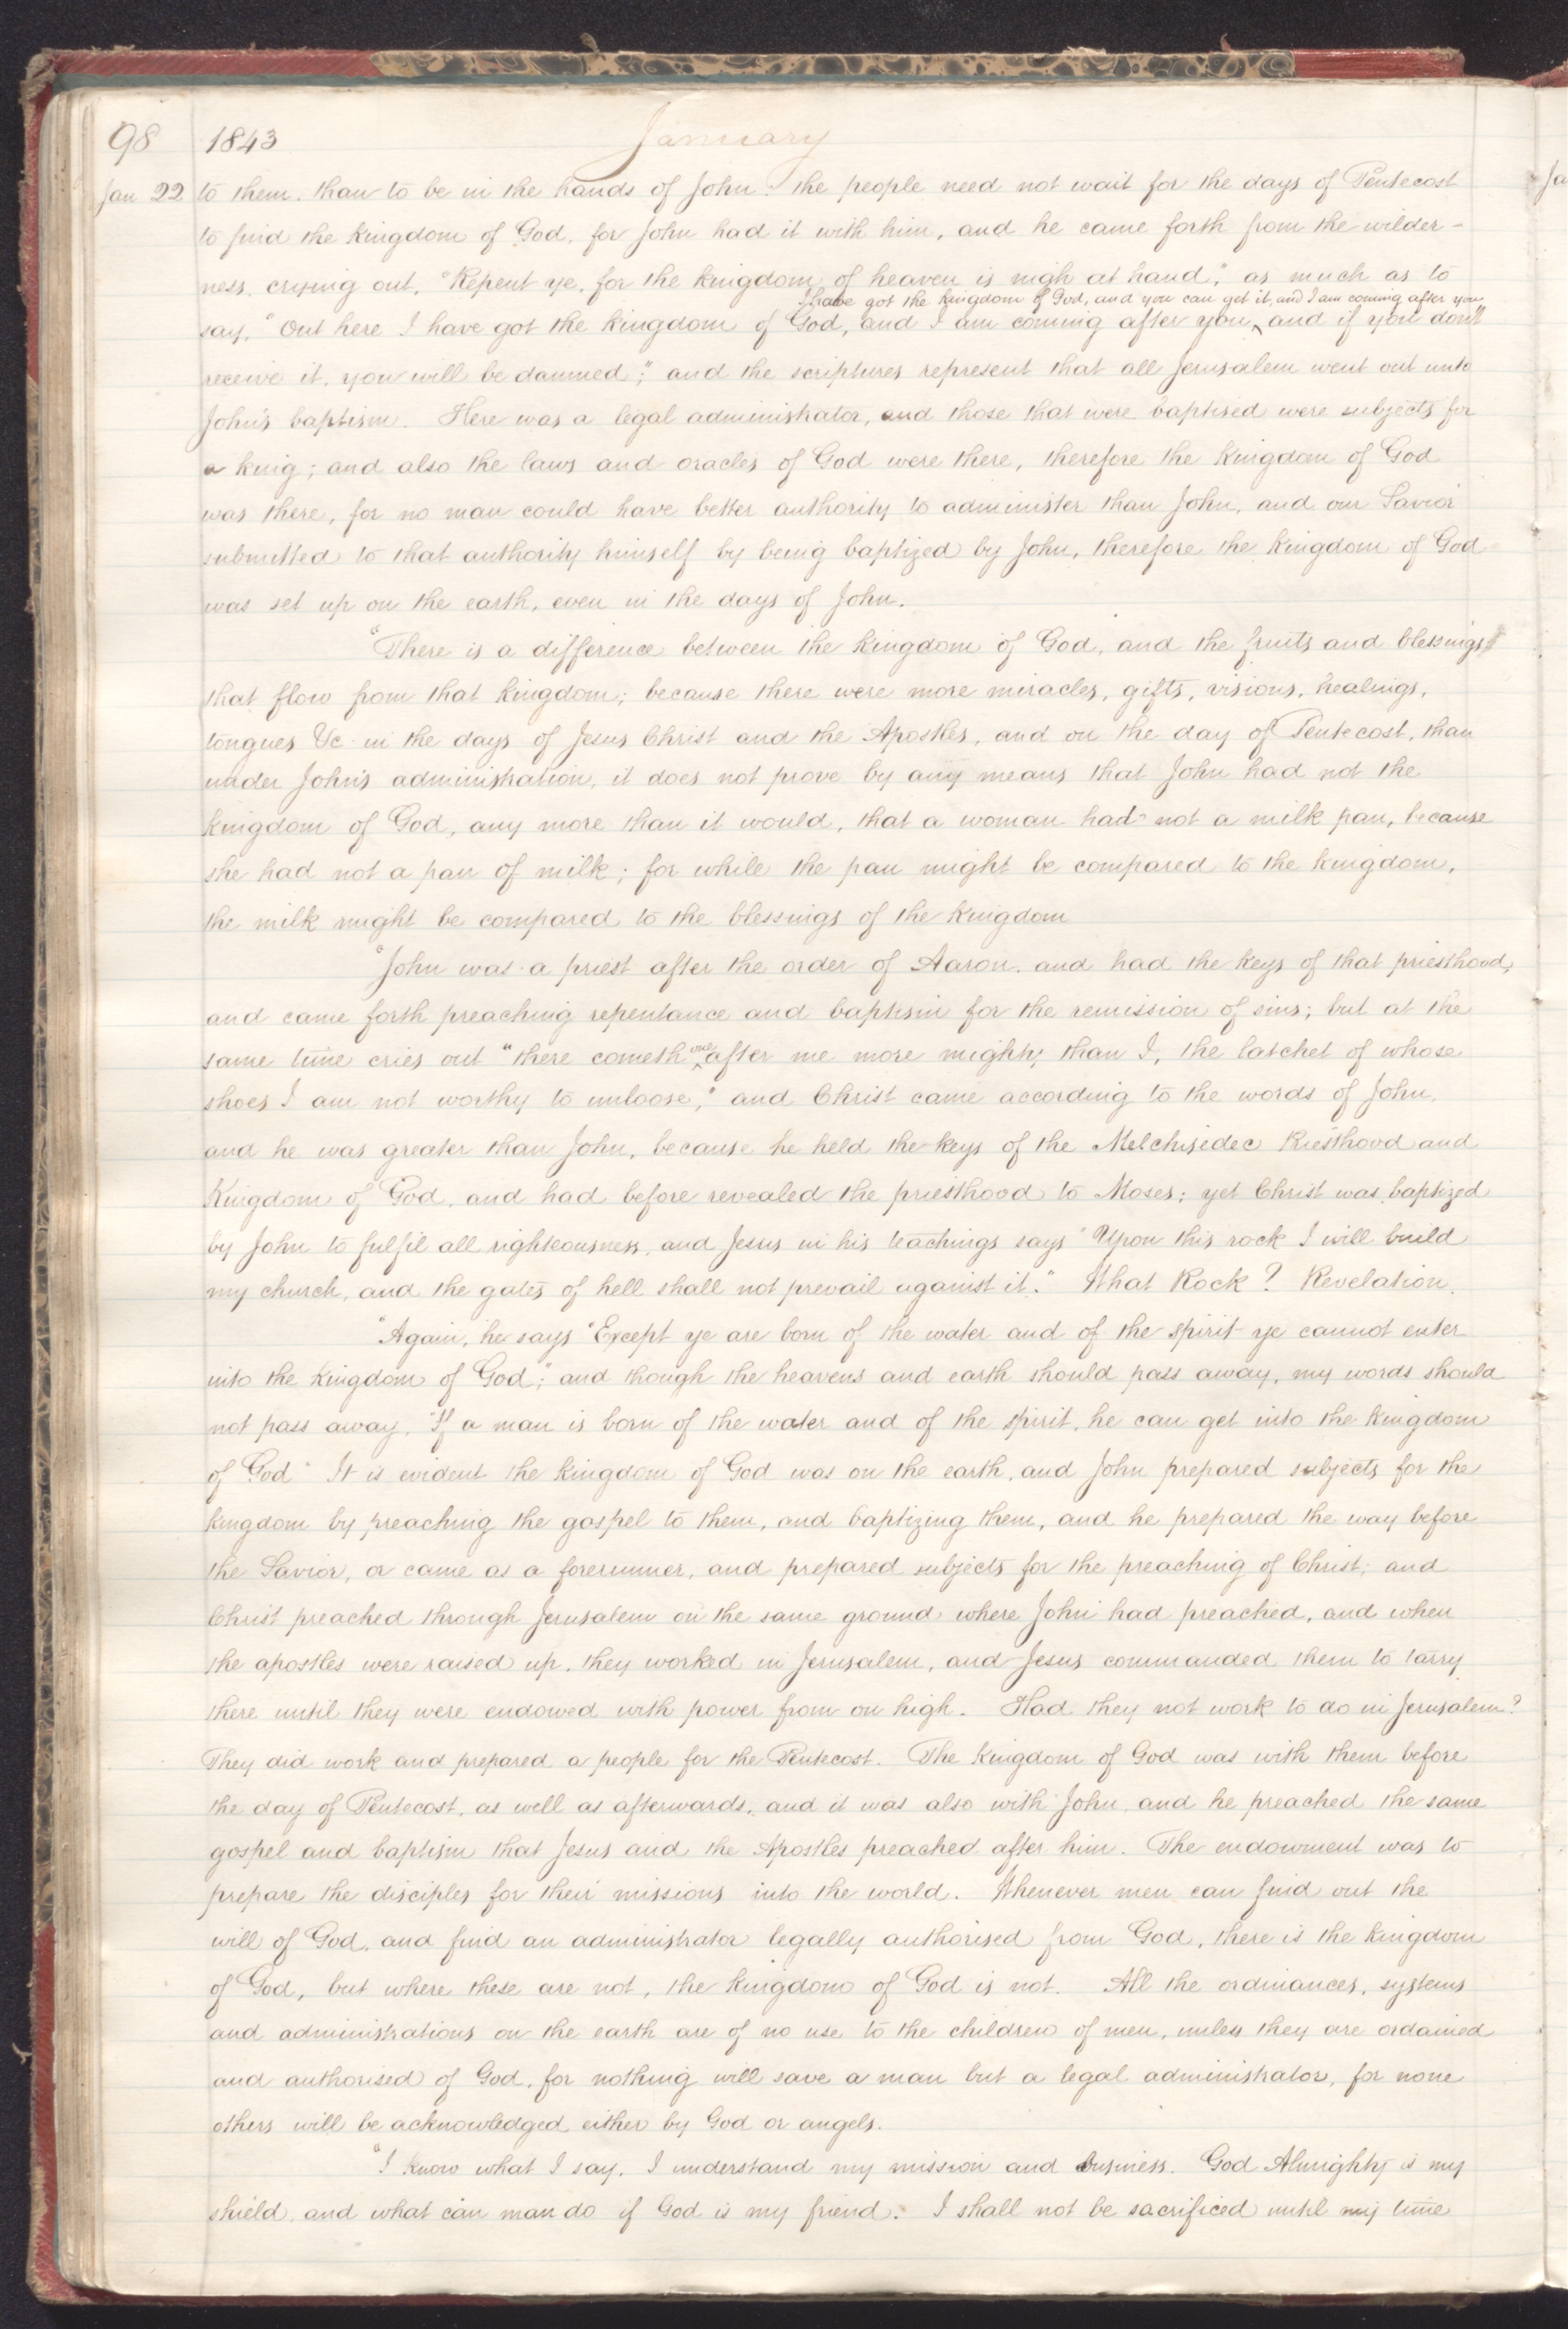 98 1843 January
Jan 22 to them, than to be in the hands of John. The people need not wait for the days of Pentecost
to find the kingdom of God, for John had it with him, and he came forth from the wilder-
ness, crying out, "Repent ye, for the kingdom of heaven is nigh at hand," as much as to
I have got the kingdom of God, and you can get it, and I am coming after you
say, "Out here I have got the kingdom of God, and I am coming after you, ^ and if you don't
receive it, you will be damned;" and the scriptures represent that all Jerusalem went out unto
John's baptism. Here was a legal administrator, and those that were baptised were subjects for
a king; and also the laws and oracles of God were there, therefore the kingdom of God
was there, for no man could have better authority to administer than John, and our Savior
submitted to that authority himself by being baptized by John, therefore the kingdom of God
was set up on the earth, even in the days of John.
"There is a difference between the kingdom of God, and the fruits and blessings
that flow from that kingdom; because there were more miracles, gifts, visions, healings,
tongues &c in the days of Jesus Christ and the Apostles, and on the day of Pentecost, than
under John's administration, it does not prove by any means that John had not the
kingdom of God, any more than it would, that a woman had not a milk pan, because
she had not a pan of milk; for while the pan might be compared to the kingdom,
the milk might be compared to the blessings of the kingdom
"John was a priest after the order of Aaron, and had the keys of that priesthood,
and came forth preaching repentance and baptism for the remission of sins; but at the
same time cries out "there cometh ^one after me more mighty than I, the latchet of whose
shoes I am not worthy to unloose," and Christ came according to the words of John,
and he was greater than John, because he held the keys of the Melchisedec Priesthood and
Kingdom of God, and had before revealed the priesthood to Moses; yet Christ was baptized
by John to fulfil all righteousness, and Jesus in his teachings says "Upon this rock I will build
my church, and the gates of hell shall not prevail against it." What Rock? Revelation.
"Again, he says "Except ye are born of the water and of the spirit ye cannot enter
into the kingdom of God;" and though the heavens and earth should pass away, my words should
not pass away. "If a man is born of the water and of the spirit, he can get into the kingdom
of God" It is evident the kingdom of God was on the earth, and John prepared subjects for the
kingdom by preaching the gospel to them, and baptizing them, and he prepared the way before
the Savior, or came as a forerunner, and prepared subjects for the preaching of Christ; and
Christ preached through Jerusalem on the same ground where John had preached, and when
the apostles were raised up, they worked in Jerusalem, and Jesus commanded them to tarry
there until they were endowed with power from on high. Had they not work to do in Jerusalem?
They did work and prepared a people for the Pentecost. The kingdom of God was with them before
the day of Pentecost, as well as afterwards, and it was also with John, and he preached the same
gospel and baptism that Jesus and the Apostles preached after him. The endowment was to
prepare the disciples for their missions into the world. Whenever men can find out the
will of God, and find an administrator legally authorised from God, there is the kingdom
of God, but where these are not, the kingdom of God is not. All the ordinances, systems
and administrations on the earth are of no use to the children of men, unless they are ordained
and authorised of God, for nothing will save a man but a legal administrator, for none
others will be acknowledged either by God or angels.
"I know what I say, I understand my mission and business. God Almighty is my
shield, and what can man do if God is my friend. I shall not be sacrificed until my time
Ja